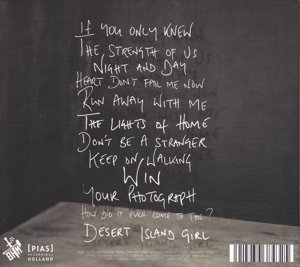 If you only knew
The Strength of Us
Night and Day
Heart Don't Fail Me Now
Run Away With Me
The Lights of Home
Don't be a Stranger
Keep on Walking
Win
Your Photograph
How did it ever come to this?
Desert Island Girl
[PIAS]
RECORDINGS
HOLLAND